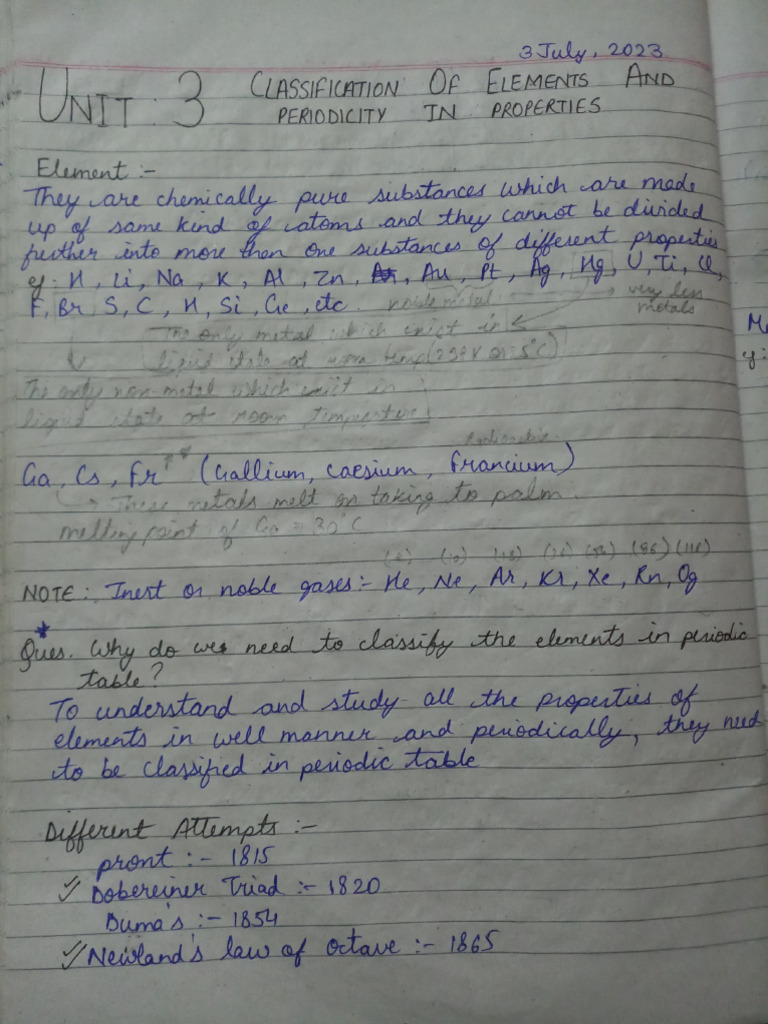 3 July, 2023
UNIT : 3 CLASSIFICATION OF ELEMENTS AND
PERIODICITY IN PROPERTIES
Element :-
They are chemically pure substances which are made
up of same kind of atoms and they cannot be divided
further into more than one substances of different properties
eg: H, Li, Na, K, Al, Zn, Au, Pt, Ag, Hg, U, Ti, Cl,
F, Br, S, C, H, Si, Ge, etc. noble metal very less
metals
The only metal which exist in
liquid state at room temp
The only non-metal which exist in
liquid state at room temperature
Radioactive
Ga, Cs, Fr (Gallium, Caesium, Francium)
These metals melt on taking to palm.
melting point of Ga = 30°C
(2) (10) (18) (36) (54) (86) (118)
NOTE: Inert or noble gases:- He, Ne, Ar, Kr, Xe, Rn, Og
Ques. Why do we need to classify the elements in periodic
table?
To understand and study all the properties of
elements in well manner and periodically, they need
to be classified in periodic table
Different Attempts :-
pront :- 1815
Dobereiner Triad :- 1820
Duma's :- 1854
Newland's law of octave :- 1865